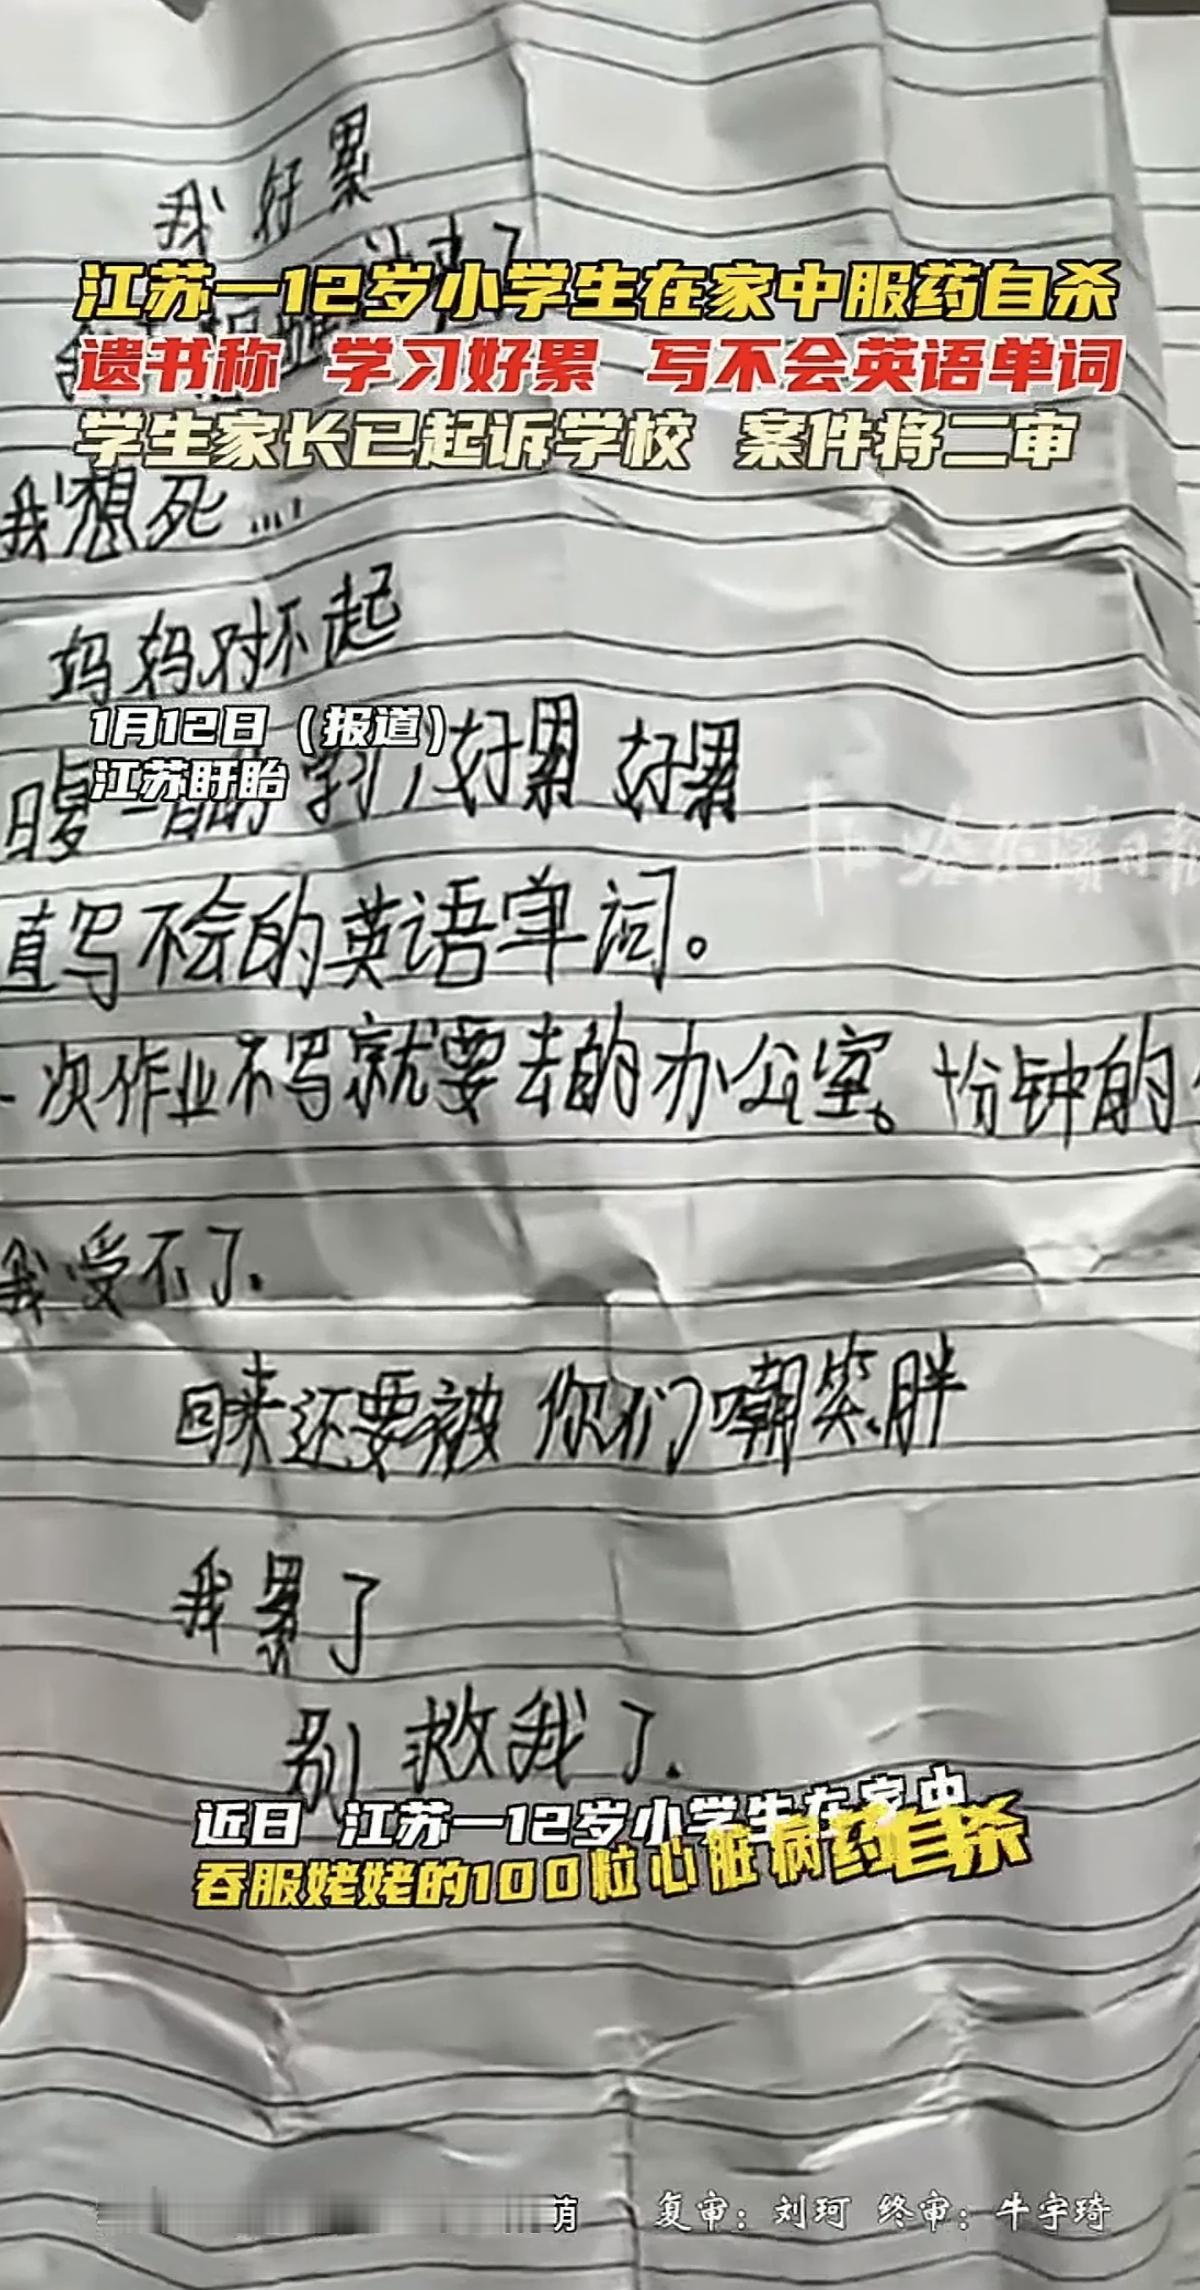 我好累
江苏一12岁小学生在家中服药自杀
遗书称 学习好累 写不会英语单词
学生家长已起诉学校 案件将二审
我想死...
妈妈对不起
1月12日（报道）
江苏盱眙
日复一日的学习，好累 好累
直写不会的英语单词。
次作业不写就要去的办公室。十份钟的
我受不了.
回来还要被你们嘲笑胖
我累了
别救我了.
近日 江苏一12岁小学生在家中
吞服姥姥的100粒心脏病药自杀
复审：刘珂 终审：牛宇琦